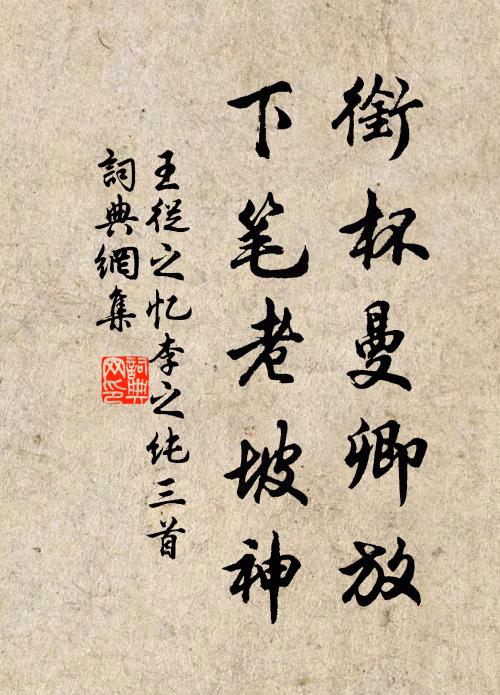 銜杯曼卿放
下笔老坡神
王從之忆李之纯三首
詞典網集
詞典
网印